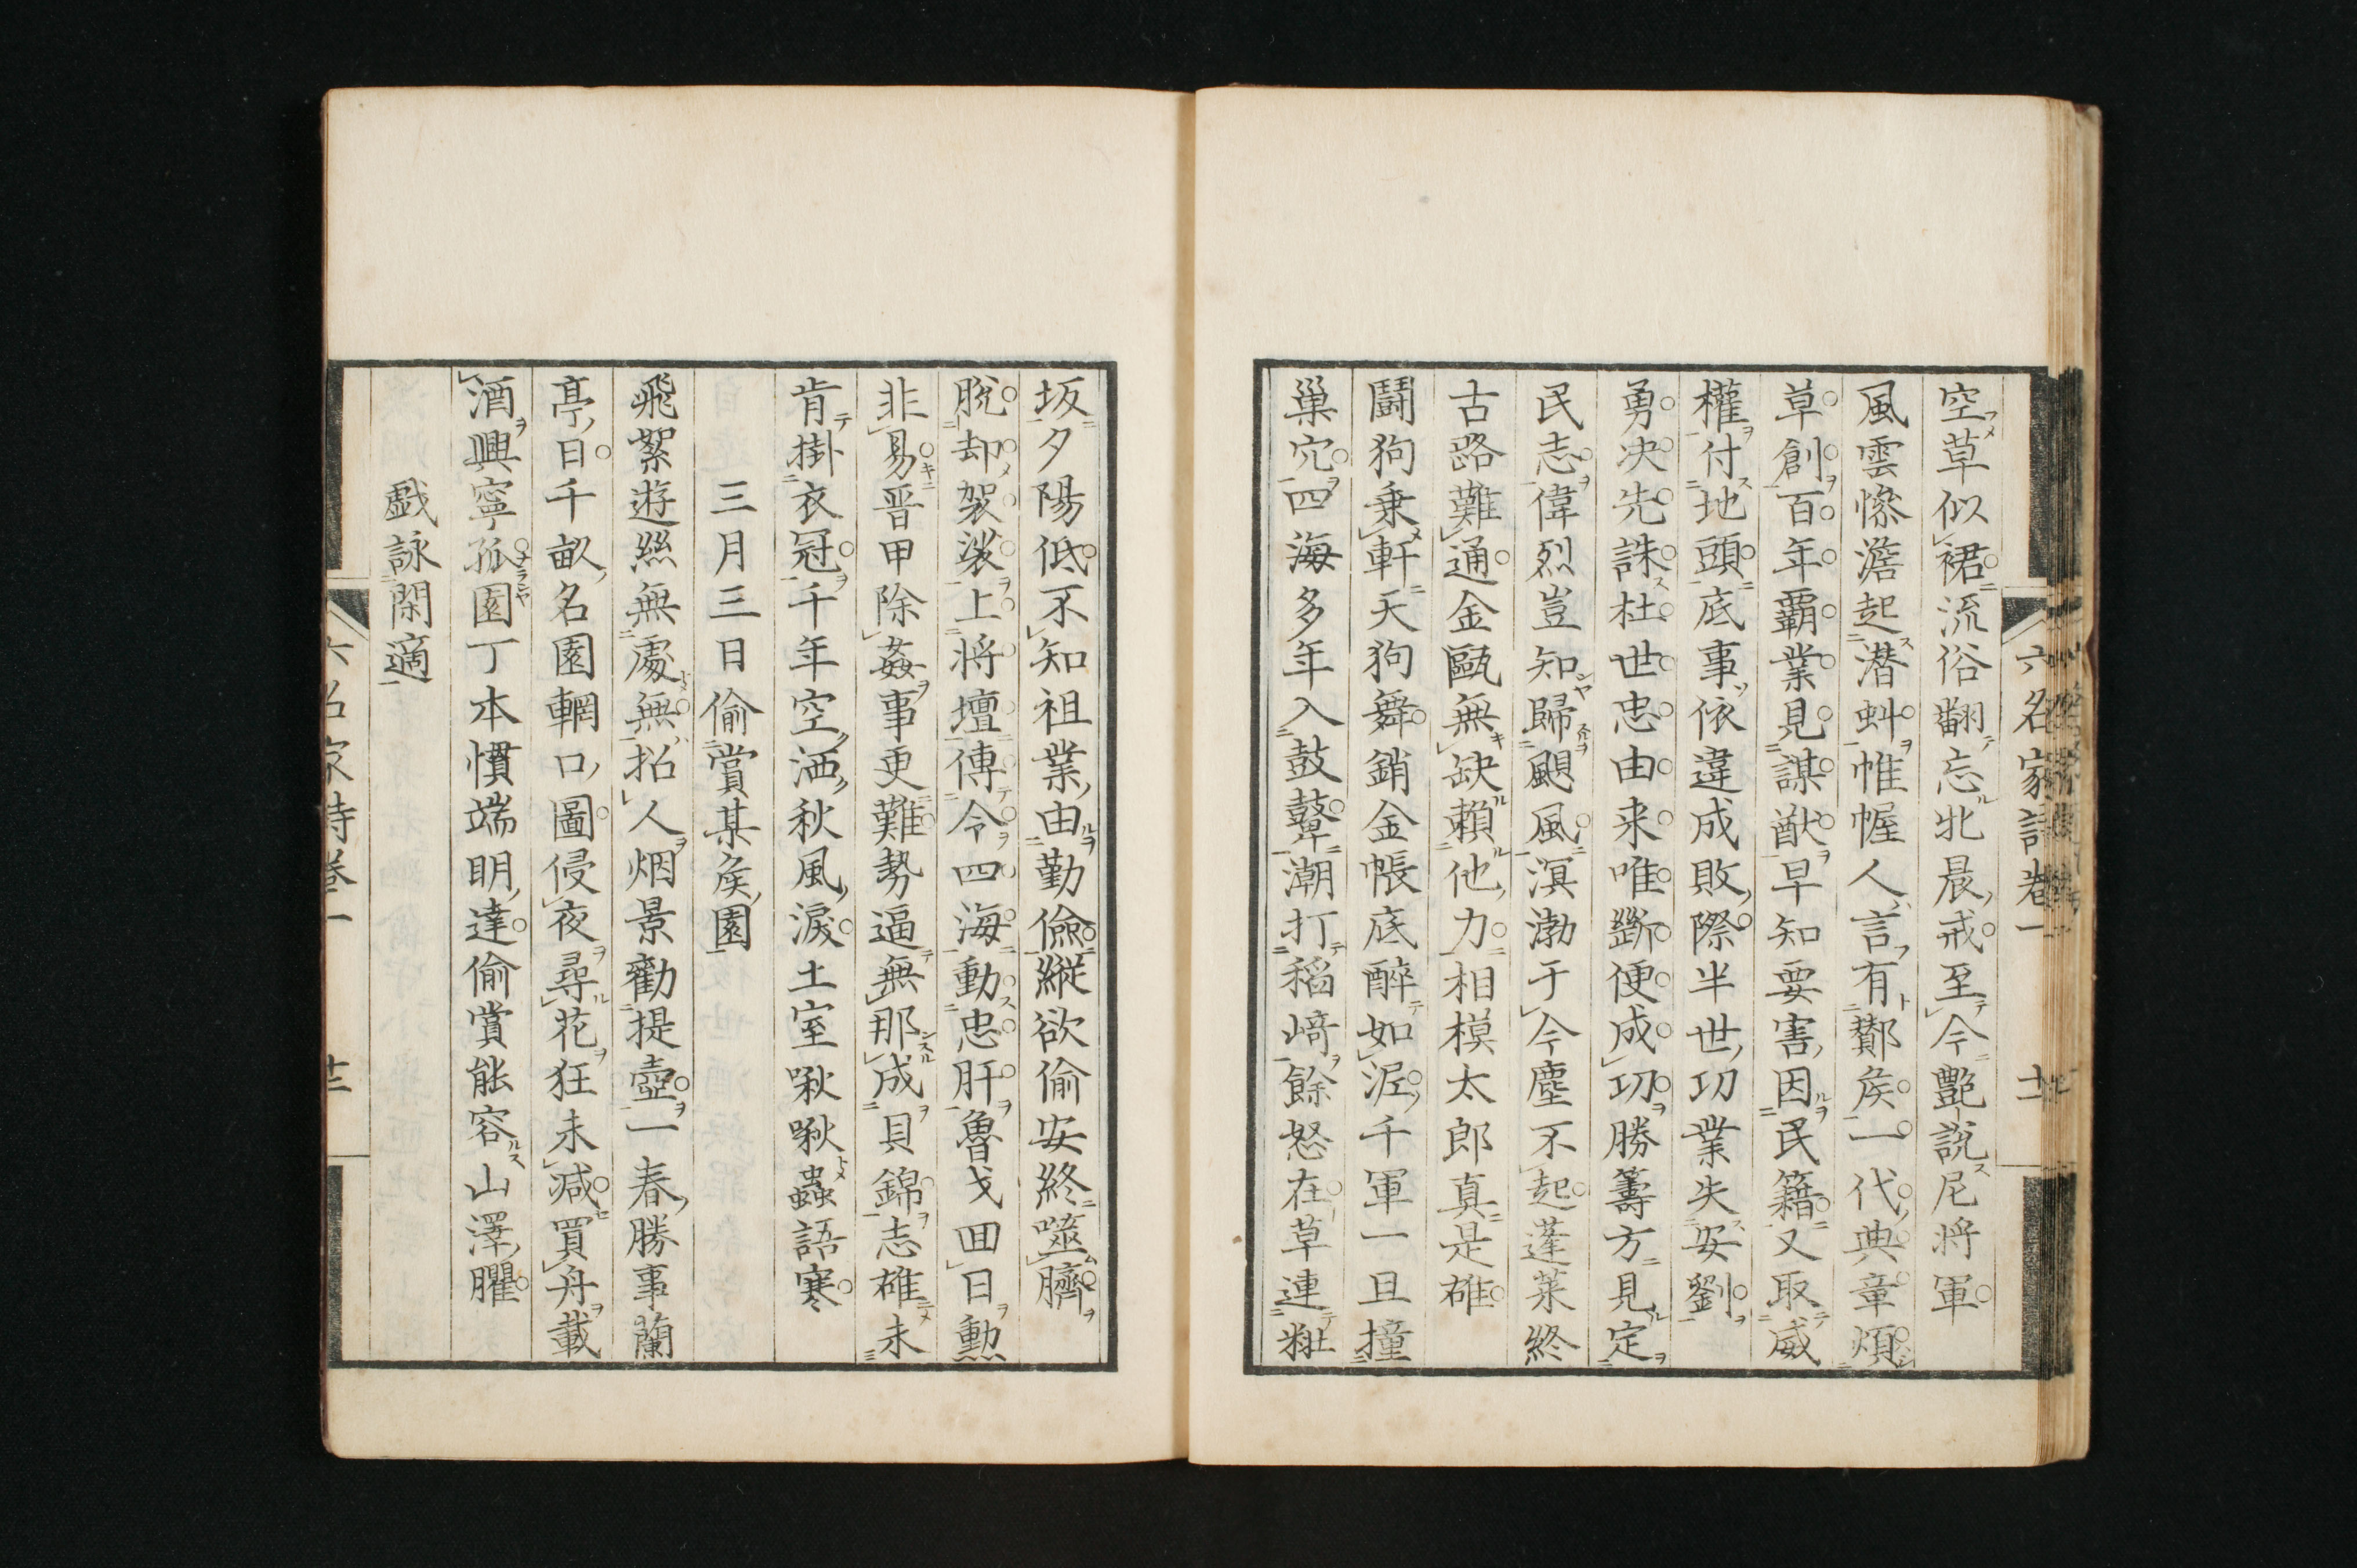 空草似裙流俗翻忘牝晨戒至今艷說尼將軍
風雲慘澹起潜蚪帷幄人言有酇矦一代典章煩
草創百年覇業見謀猷早知要害因民籍又取威
權付地頭底事依違成敗際半世功業失安劉
勇决先誅杜世忠由来唯斷便成功勝籌方見定
民志偉烈豈知歸颶風溟渤于今塵不起蓬萊終
古路難通金甌無缺頼他力相模太郎真是雄
鬪狗乗軒天狗舞銷金帳底醉如泥千軍一旦撞
巢穴四海多年入鼓鼙潮打稻﨑餘怒在草連
六名家詩卷一
坂夕陽低不知祖業由勤儉縱欲偷安終噬臍
脫却袈裟上將壇傳令四海動忠肝魯戈回日勲
非易晋甲除姦事更難勢逼無那成貝錦志雄未
肯掛衣冠千年空洒秋風淚土室啾啾蟲語寒
三月三日偷賞某矦園
飛絮遊絲無處無招人烟景勸提壺一春勝事蘭
亭日千畝名園輞口圖侵夜尋花狂未減買舟載
酒興寧孤園丁本慣端明達偷賞能容山澤臞
戯詠閑適
六名家詩卷一